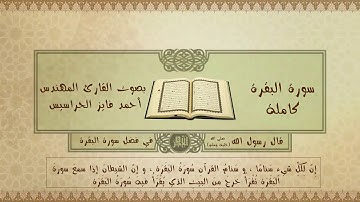 سورة البقرة
كاملة
بصوت القارئ المهندس
أحمد فايز الحراسيس
قال رسول الله صلى الله عليه وسلم في فضل سورة البقرة
إن لكل شيء سناما ، و سنام القرآن سورة البقرة ، و إن الشيطان إذا سمع سورة
البقرة تقرأ خرج من البيت الذي يقرأ فيه سورة البقرة